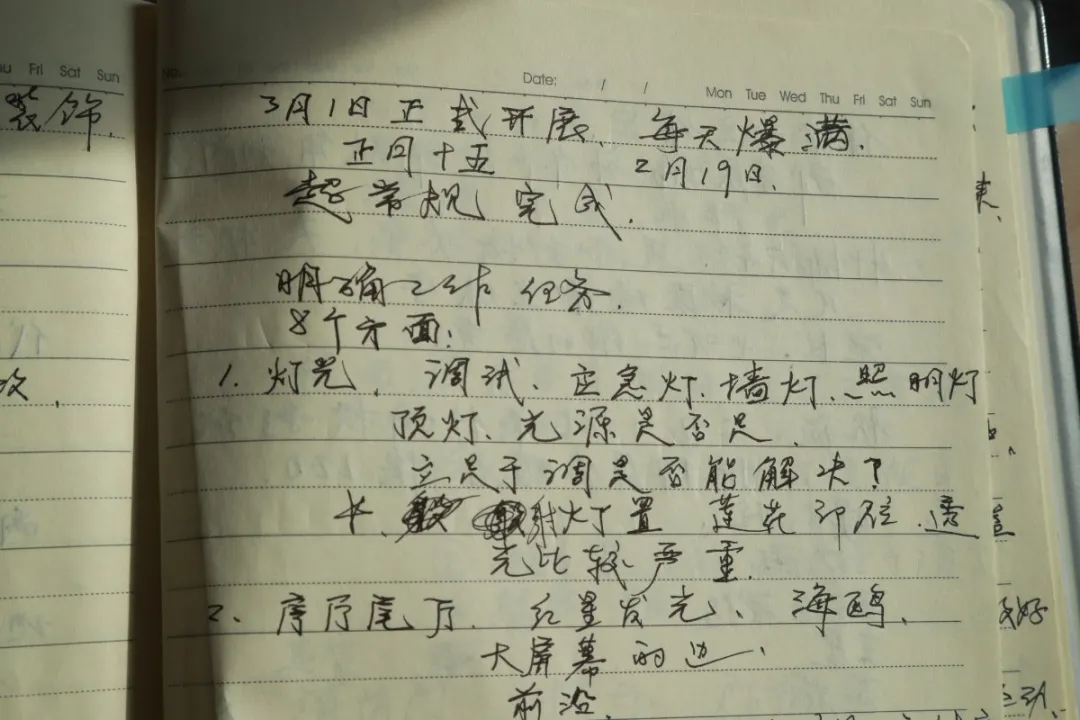 Fri Sat Sun
装饰.
No.
Date: / /
Mon Tue Wed Thu Fri Sat Sun
3月1日正式开展、每天爆满.
正月十五 2月19日.
超常规完成.
明确工作任务.
8个方面:
1. 灯光、调试、应急灯、墙灯、照明灯
顶灯、光源是否足、
立足于调是否能解决?
射灯置 莲花 透
光比较严重.
2、序厅尾厅. 红星发光、海鸥、
大屏幕的边、
前沿、